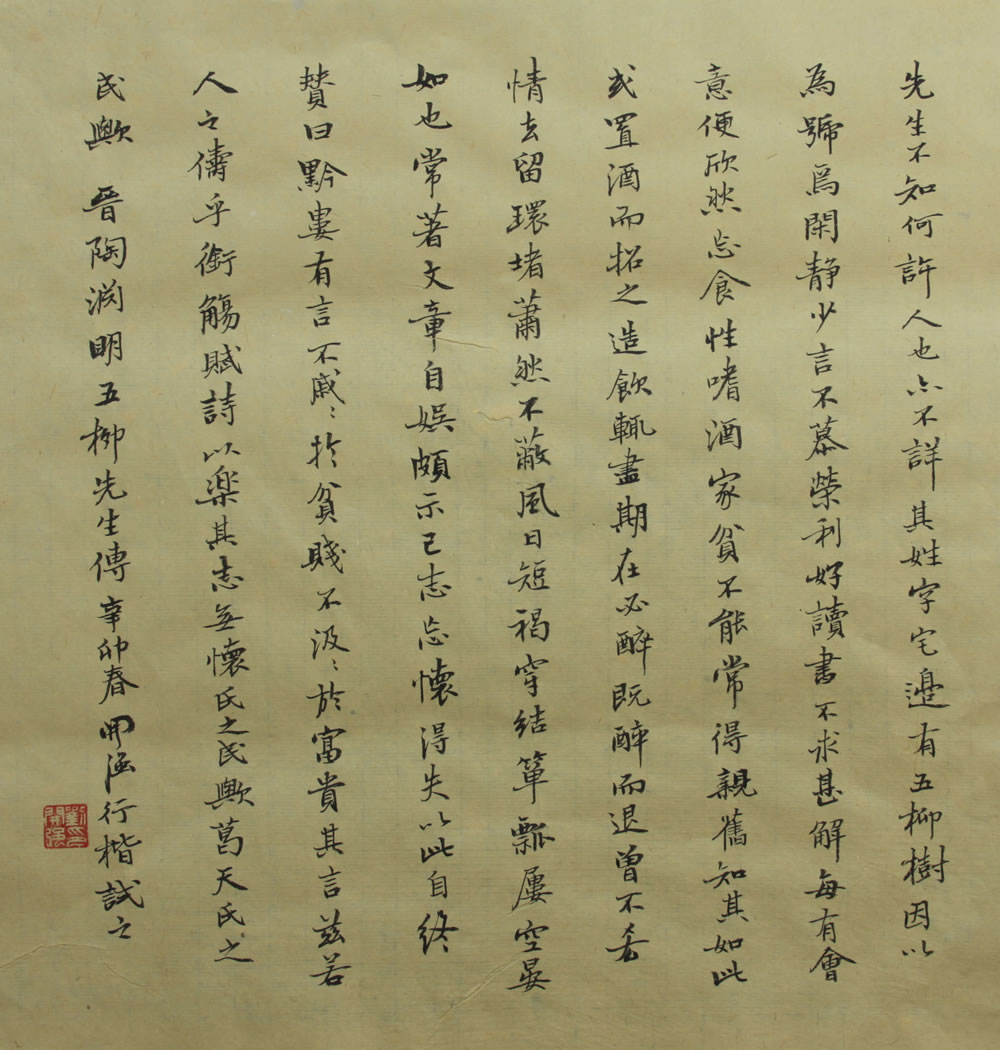 先生不知何許人也亦不詳其姓字宅邊有五柳樹因以
為號焉閑静少言不慕榮利好讀書不求甚解每有會
意便欣然忘食性嗜酒家貧不能常得親舊知其如此
或置酒而招之造飲輒盡期在必醉既醉而退曾不吝
情去留環堵蕭然不蔽風日短褐穿結簞瓢屢空晏
如也常著文章自娛頗示己志忘懷得失以此自終
贊曰黔婁有言不戚〻於貧賤不汲〻於富貴其言茲若
人之儔乎銜觴賦詩以樂其志無懷氏之民歟葛天氏之
民歟 晉陶淵明五柳先生傳辛卯春開强行楷試之
劉開强印